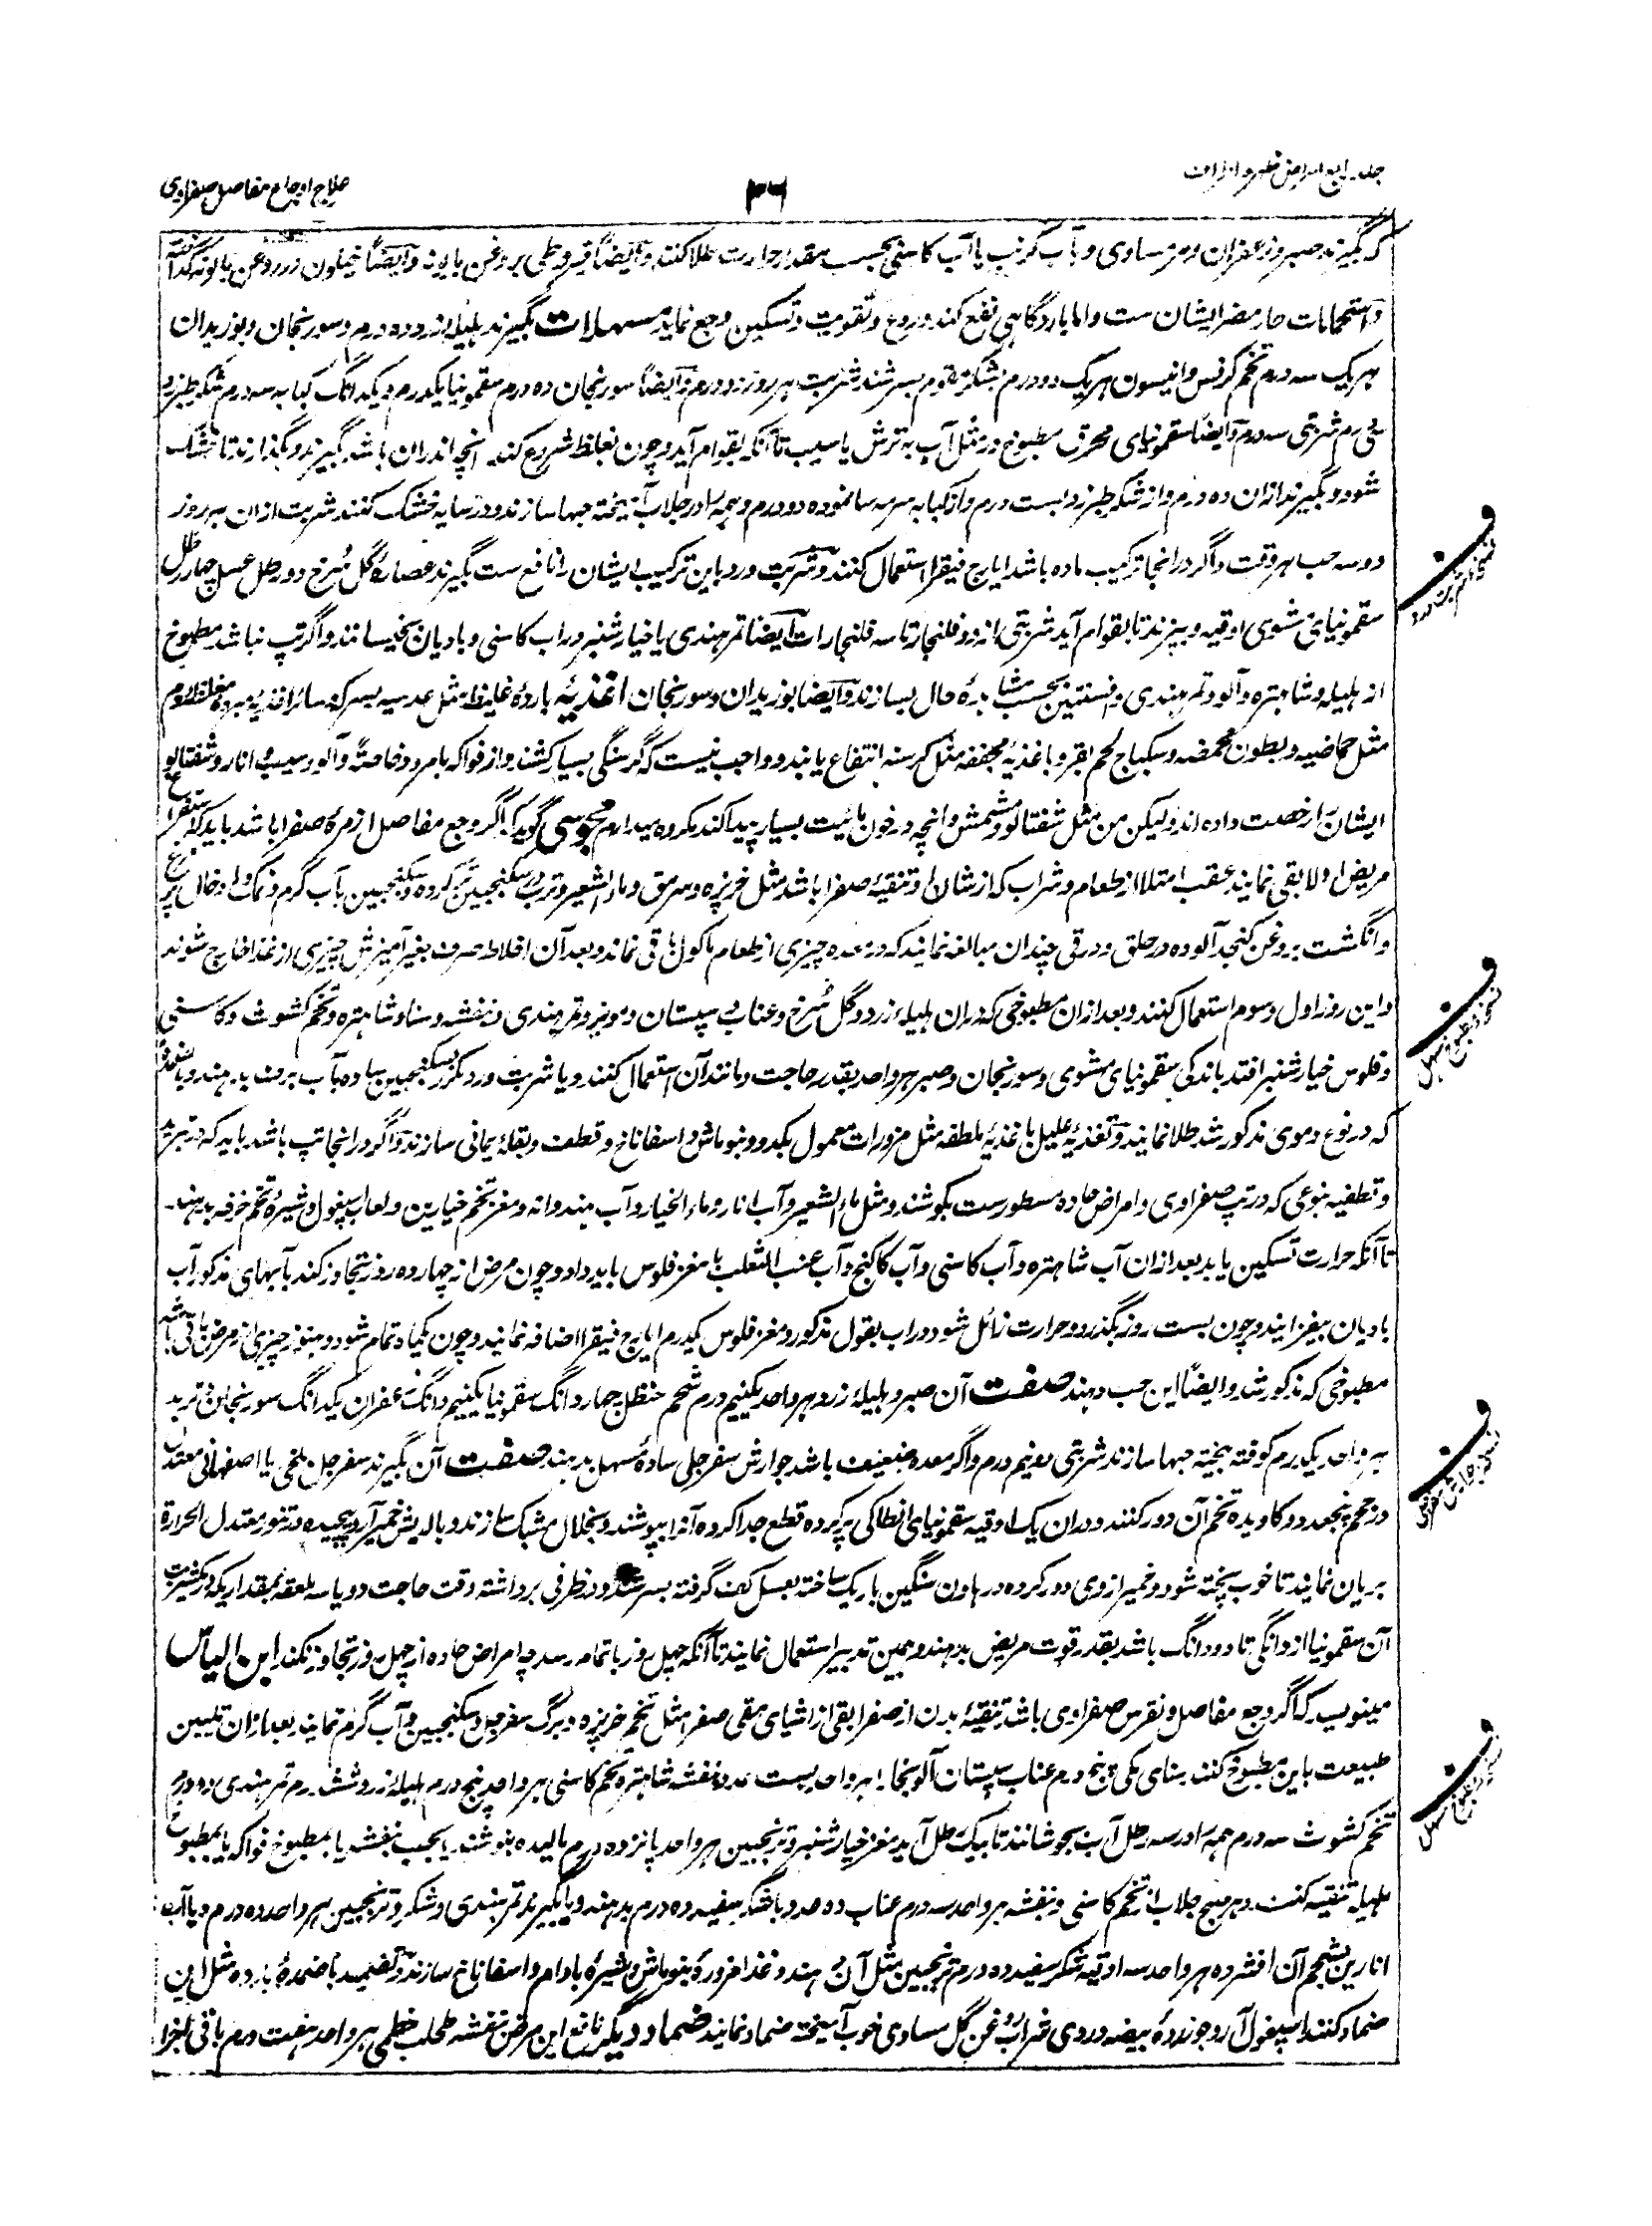 جلد رابع امراض ظهر و اطراف
۳۶
علاج اوجاع مفاصل صفراوی
که بگیرند صبر و زعفران و مر مساوی و بآب کرنب یا آب کاسنی بحسب مقدار حرارت طلا کنند وایضاً قیروطی بروغن بابونه وایضاً خیلون در روغن بابونه گداخته
و استحمامات حار مضر ایشان ست و اما بارد گاهی نفع کند و ردع و تقویت و تسکین وجع نماید مسهلات بگیرند هلیله زرد ده درم و سورنجان و بوزیدان
هریک سه درم تخم کرفس و انیسون هریک دو درم بشکر مقوم بسرشند شربت هر روز دو درم وایضاً سورنجان ده درم سقمونیا یکدرم و یکدانگ کبابه سه درم شکر طبرزد
سی درم شربتی سه درم وایضاً سقمونیای محرق مطبوخ در مثل آب به ترش یا سیب تا آنکه بقوام آید و چون بغلظ شروع کند انچه اندران باشد بگیرند و بگذارند تا خشک
شود و بگیرند ازان ده درم و از شکر طبرزد بست درم و از کبابه سرمه سا نموده دو درم و همه را در جلاب آمیخته حبها سازند و در سایه خشک کنند شربت ازان هر روز
دو سه حب هر وقت و اگر درانجا ترکیب ماده باشد ایارج فیقرا استعمال کنند و شربت ورد باین ترکیب ایشان را نافع ست بگیرند عصارهٔ گل سرخ دو رطل عسل چهار رطل
سقمونیای مشوی اوقیه و بپزند تا بقوام آید شربتی از دو فلنجار تا سه فلنجارات ایضا تمر هندی یا خیار شنبر در آب کاسنی و بادیان بخیسانند و اگر تپ نباشد مطبوخ
از هلیله و شاهتره و آلو و تمر هندی و افسنتین بحسب مشاهدهٔ حال بسازند وایضا بوزیدان و سورنجان اغذیه باردهٔ غلیظ مثل عدسیه بسرکه و سائر اغذیه مبرده مغلظ دم
مثل حماضیه و بطون محمضه و سکباج لحم بقر و باغذیهٔ مجففه مثل کرسنه انتفاع یابند و واجب نیست که گرسنگی بسیار کشند و از فواکه بامرود خاصةً و آلو و سیب و انار و شفتالو
ایشان را رخصت داده اند و لیکن من مثل شفتالو و مشمش و انچه در خون مائیت بسیار پیدا کند مکروه میدارم مجوسی گوید که اگر وجع مفاصل از مرهٔ صفرا باشد باید که استفراغ
مریض اولا بقی نمایند عقب امتلا از طعام و شراب که از شان او تنقیهٔ صفرا باشد مثل خربزه و سرمق و ماء الشعیر و ترب در سکنجبین تر کرده و سکنجبین بآب گرم و نمک و ادخال پر مرغ
و انگشت بروغن کنجد آلوده در حلق و در قی چندان مبالغه نمایند که در معده چیزی از طعام ماکول باقی نماند و بعد آن اخلاط صرف بغیر آمیزش چیزی از غذا خارج شوند
و این روز اول و سوم استعمال کنند و بعد ازان مطبوخی که دران هلیلهٔ زرد و گل سرخ و عناب سپستان و مویز و تمر هندی و بنفشه و سنا و شاهتره و تخم کشوث و کاسنی
و فلوس خیار شنبر افتد باندکی سقمونیای مشوی و سورنجان و صبر هر واحد بقدر حاجت و مانند آن استعمال کنند و یا شربت ورد مکرر بسکنجبین ساده بآب برف بدهند و بادویهٔ
که در نوع دموی مذکور شد طلا نمایند و تغذیهٔ علیل باغذیهٔ ملطفه مثل مزورات معمول بکدو و بنوماش و اسفاناخ و قطف و بقلهٔ یمانی سازند و اگر درانجا تپ باشد باید که در تبرید
و تطفیه بنوعی که در تپ صفراوی و امراض حاده مسطورست بکوشند و مثل ماء الشعیر و آب انار و ماء الخیار و آب هندوانه و مغز تخم خیارین و لعاب اسپغول و شیرهٔ تخم خرفه بدهند
تا آنکه حرارت تسکین یابد بعد ازان آب شاهتره و آب کاسنی و آب کاکنج و آب عنب الثعلب با مغز فلوس باید داد و چون مرض از چهارده روز تجاوز کند بآبهای مذکور آب
بادیان بیفزایند و چون بست روز بگذرد و حرارت زائل شود در آب بقول مذکور و مغز فلوس یکدرم ایارج فیقرا اضافه نمایند و چون یکماه تمام شود و هنوز چیزی از مرض باقی باشد
مطبوخی که مذکور شد و ایضاً این حب دهند صفت آن صبر و هلیلهٔ زرد هر واحد یکنیم درم شحم حنظل چهار دانگ سقمونیا یکنیم دانگ زعفران یکدانگ سورنجان تربد
هر واحد یکدرم کوفته بیخته حبها سازند شربتی دو نیم درم و اگر معده ضعیف باشد جوارش سفرجلی سادهٔ مسهل بدهند صفت آن بگیرند سفرجل بلخی یا اصفهانی معتدل
در حجم پنجعدد و کاویده تخم آن دور کنند و دران یک اوقیه سقمونیای انطاکی پر کرده قطع جدا کرده آنرا بپوشند و بخلال مشبک سازند و بالایش خمیر آرد پیچیده در تنور معتدل الحرارة
بریان نمایند تا خوب پخته شود و خمیر از وی دور کرده در هاون سنگین باریک ساخته بعسل کف گرفته بسرشند و در ظرفی برداشته وقت حاجت دو یا سه ملعقه بمقداریکه در یکشربت
آن سقمونیا از دانگی تا دو دانگ باشد بقدر قوت مریض بدهند و همین تدبیر استعمال نمایند تا آنکه چهل روز باتمام رسد چه امراض حاده از چهل روز تجاوز نکند ابن الیاس
مینویسد که اگر وجع مفاصل و نقرس صفراوی باشد تنقیهٔ بدن از صفرا بقی از اشیای مقی صفرا مثل تخم خربزه و برگ سفرجل و سکنجبین و آب گرم نمایند بعد ازان تلیین
طبیعت باین مطبوخ کنند سنای مکی پنج درم عناب سپستان آلو بخارا هر واحد بیست عدد بنفشه شاهتره تخم کاسنی هر واحد پنج درم هلیلهٔ زرد شش درم تمر هندی ده درم
تخم کشوث سه درم همه را در سه رطل آب بجوشانند تا بیک رطل آید مغز خیار شنبر و ترنجبین هر واحد پانزده درم مالیده بنوشند یا بحب بنفشه یا بمطبوخ فواکه یا بمطبوخ
هلیله تنقیه کنند و هر صبح جلاب از تخم کاسنی و بنفشه هر واحد سه درم عناب ده عدد باشکر سفید ده درم بدهند و یا بگیرند تمر هندی و شکر و ترنجبین هر واحد ده درم و یا آب
انارین بشحم آن افشرده هر واحد سه اوقیه شکر سفید ده درم ترنجبین مثل آن بدهند و غذا مزورهٔ بنوماش و شیرهٔ بادام و اسفاناخ سازند و تضمید باضمدهٔ بارده مثل این
ضماد کنند اسپغول آرد جو زردهٔ بیضه دردی شراب روغن گل مساوی خوب آمیخته ضماد نمایند ضماد دیگر نافع این مرض بنفشه طحلب خطمی هر واحد هفت درم باقی اجزا
نسخهٔ شربت ورد
نسخهٔ مطبوخ مسهل
نسخهٔ مطبوخ مسهل